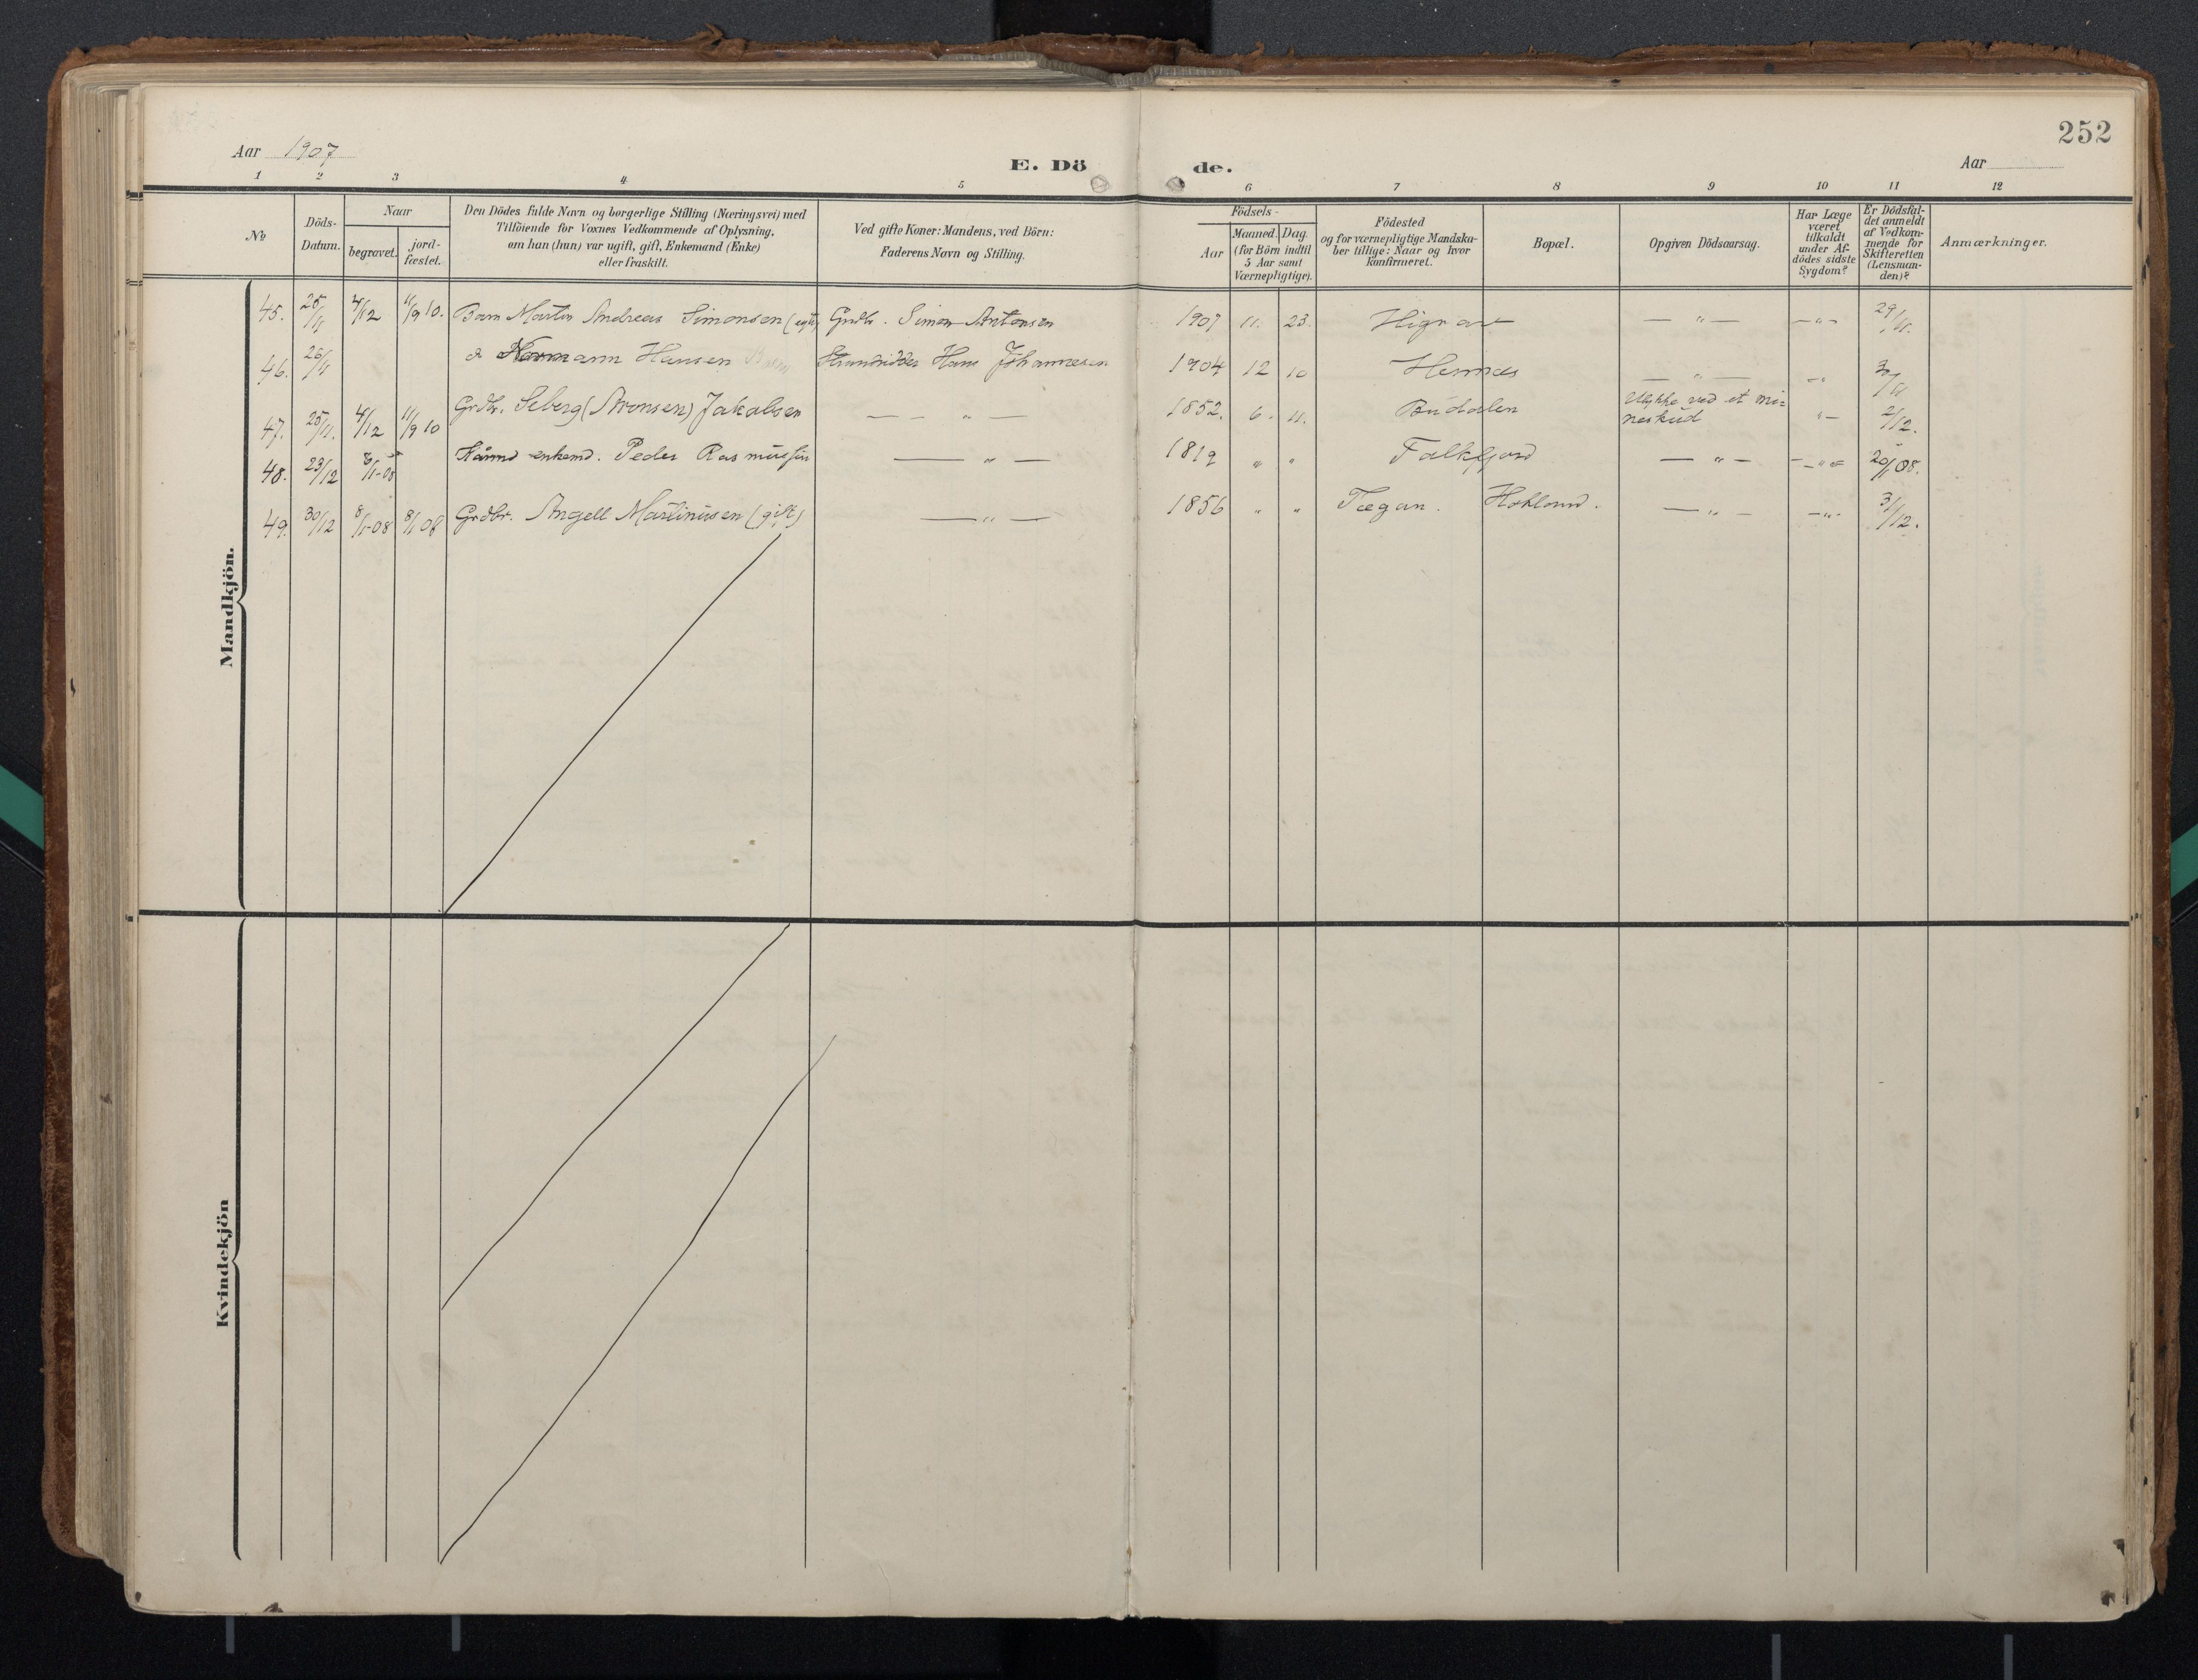 252
Aar 1907
E. Dö de.
Aar
1 2 3 4 5 6 7 8 9 10 11 12
No
Döds-
Datum.
Naar
begravet.
jord-
fæstet.
Den Dödes fulde Navn og borgerlige Stilling (Næringsvei) med
Tilföiende for Voxnes Vedkommende af Oplysning,
om han (hun) var ugift, gift, Enkemand (Enke)
eller fraskilt.
Ved gifte Koner: Mandens, ved Börn:
Faderens Navn og Stilling.
Födsels-
Aar
Maaned. Dag.
(for Börn indtil
5 Aar samt
Værnepligtige).
Födested
og for værnepligtige Mandska-
ber tillige: Naar og hvor
konfirmeret.
Bopæl.
Opgiven Dödsaarsag.
Har Læge
været
tilkaldt
under Af-
dödes sidste
Sygdom?
Er Dödsfal-
det anmeldt
af Vedkom-
mende for
Skifteretten
(Lensman-
den)?
Anmærkninger.
Mandkjön.
45. 25/11 4/12 11/9 10. Barn Martin Andreas Simonsen Grdbr. Simon Antonsen 1907 11. 23. — „ — — „ — 29/11.
46. 26/11 Normann Hansen Hans Johannesen 1904 12 10 — „ —
47. 25/11. 4/12 11/9 10 Grdbr. Seberg (Aronsen) Jakobsen — — „ — 1852. 6. 11. Budalen Ulykke ved et mi=
neskud „ — 2/12.
48. 23/12 8/1-08 enkemd. Peder Rasmussen — „ — 1819 „ „ Falkfjord — „ — — „ — 20/1 08.
49. 30/12 8/1-08 8/1 08 Grdbr. Angell Martinusen (gift) — „ — 1856 „ „ Tægan. — „ — — „ — 31/12.
Kvindekjön